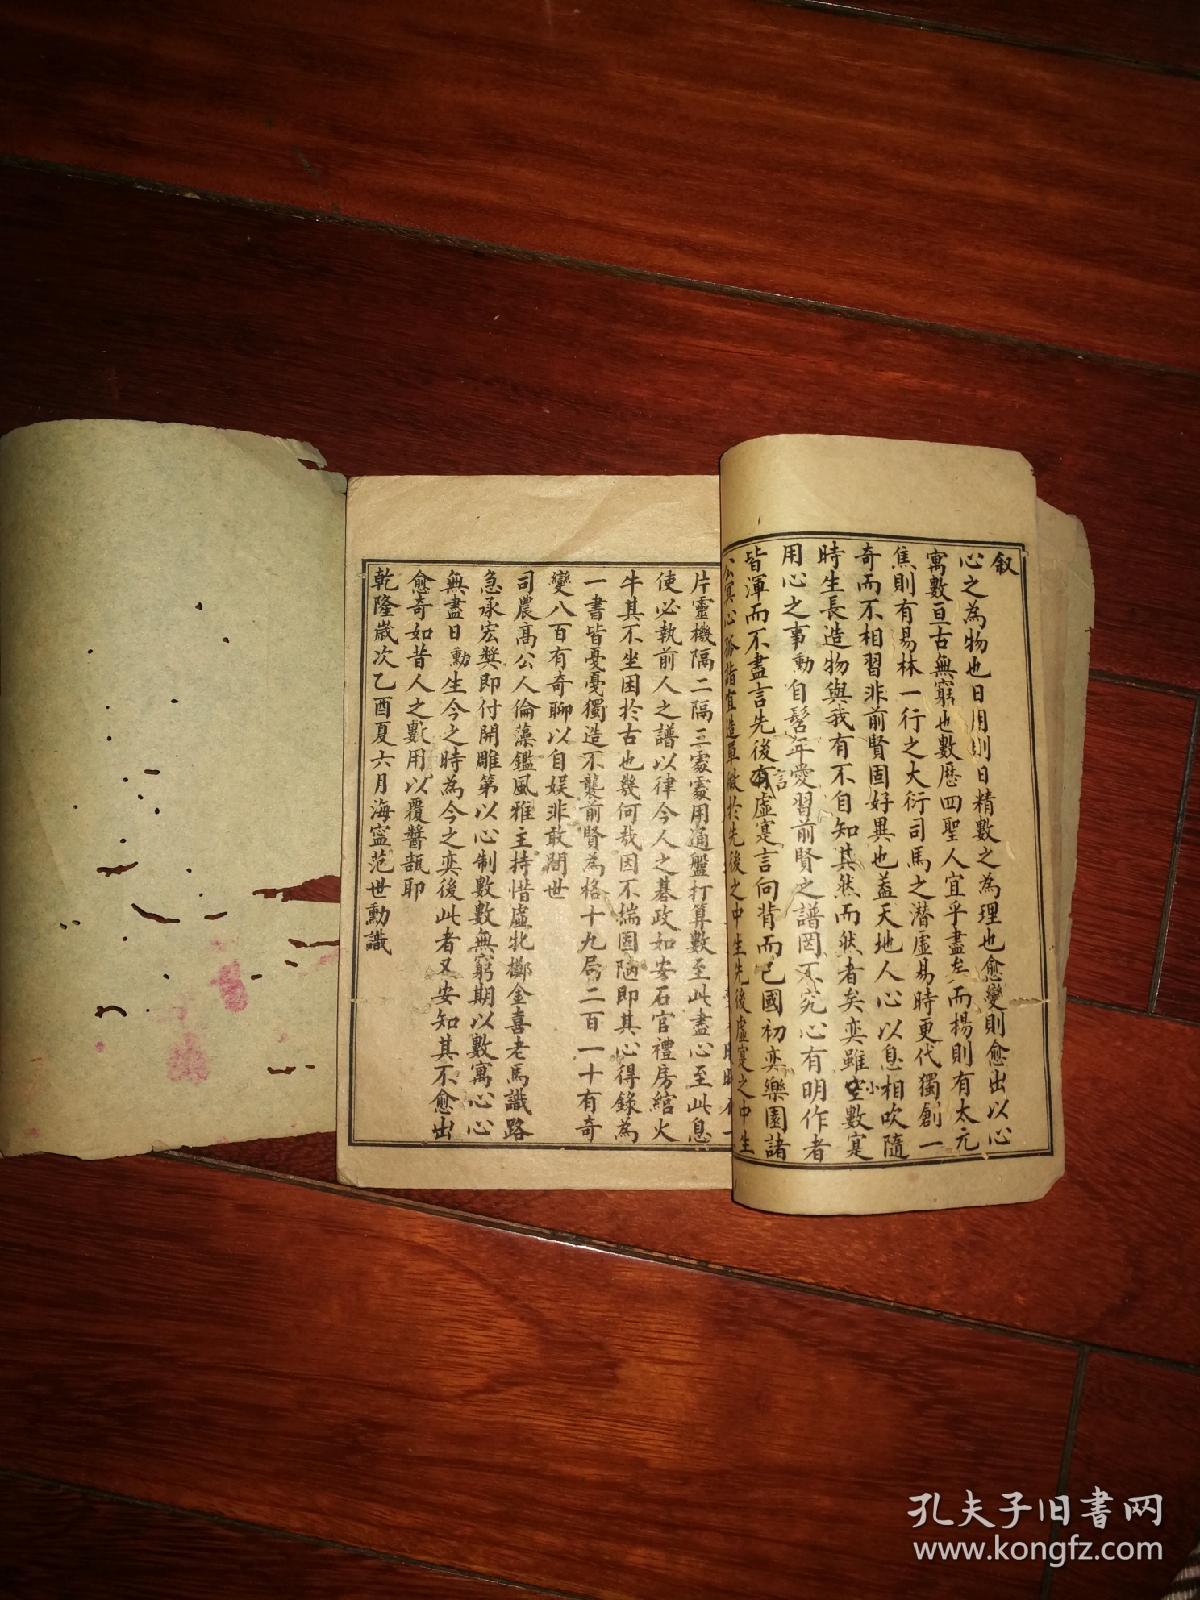 叙
心之為物也日用則日精數之為理也愈變則愈出以心
寓數亘古無窮也數歷四聖人宜乎盡矣而楊則有太元
焦則有易林一行之大衍司馬之潛虛易時更代獨創一
奇而不相習非前賢固好異也蓋天地人心以息相吹隨
時生長造物與我有不自知其然而然者矣奕雖小數寔
用心之事勳自髫年愛習前賢之譜罔不究心有明作者
皆渾而不盡言先後言虛寔言向背而已國初奕樂園諸
公冥心
於先後之中生先後虛寔之中生
片靈機隔二隔三處處用通盤打算數至此盡心至此息
使必執前人之譜以律今人之碁政如安石官禮房綰火
牛其不坐困於古也幾何哉因不揣固陋即其心得錄為
一書皆戞戞獨造不襲前賢為格十九局二百一十有奇
變八百有奇聊以自娱非敢問世
司農高公人倫藻鑑風雅主持惜虛牝擲金喜老馬識路
急承宏奬即付開雕第以心制數數無窮期以數寓心心
無盡日勳生今之時為今之奕後此者又安知其不愈出
愈奇如昔人之數用以覆醬瓿耶
乾隆歲次乙酉夏六月海寧范世勳識
孔夫子旧书网
www.kongfz.com